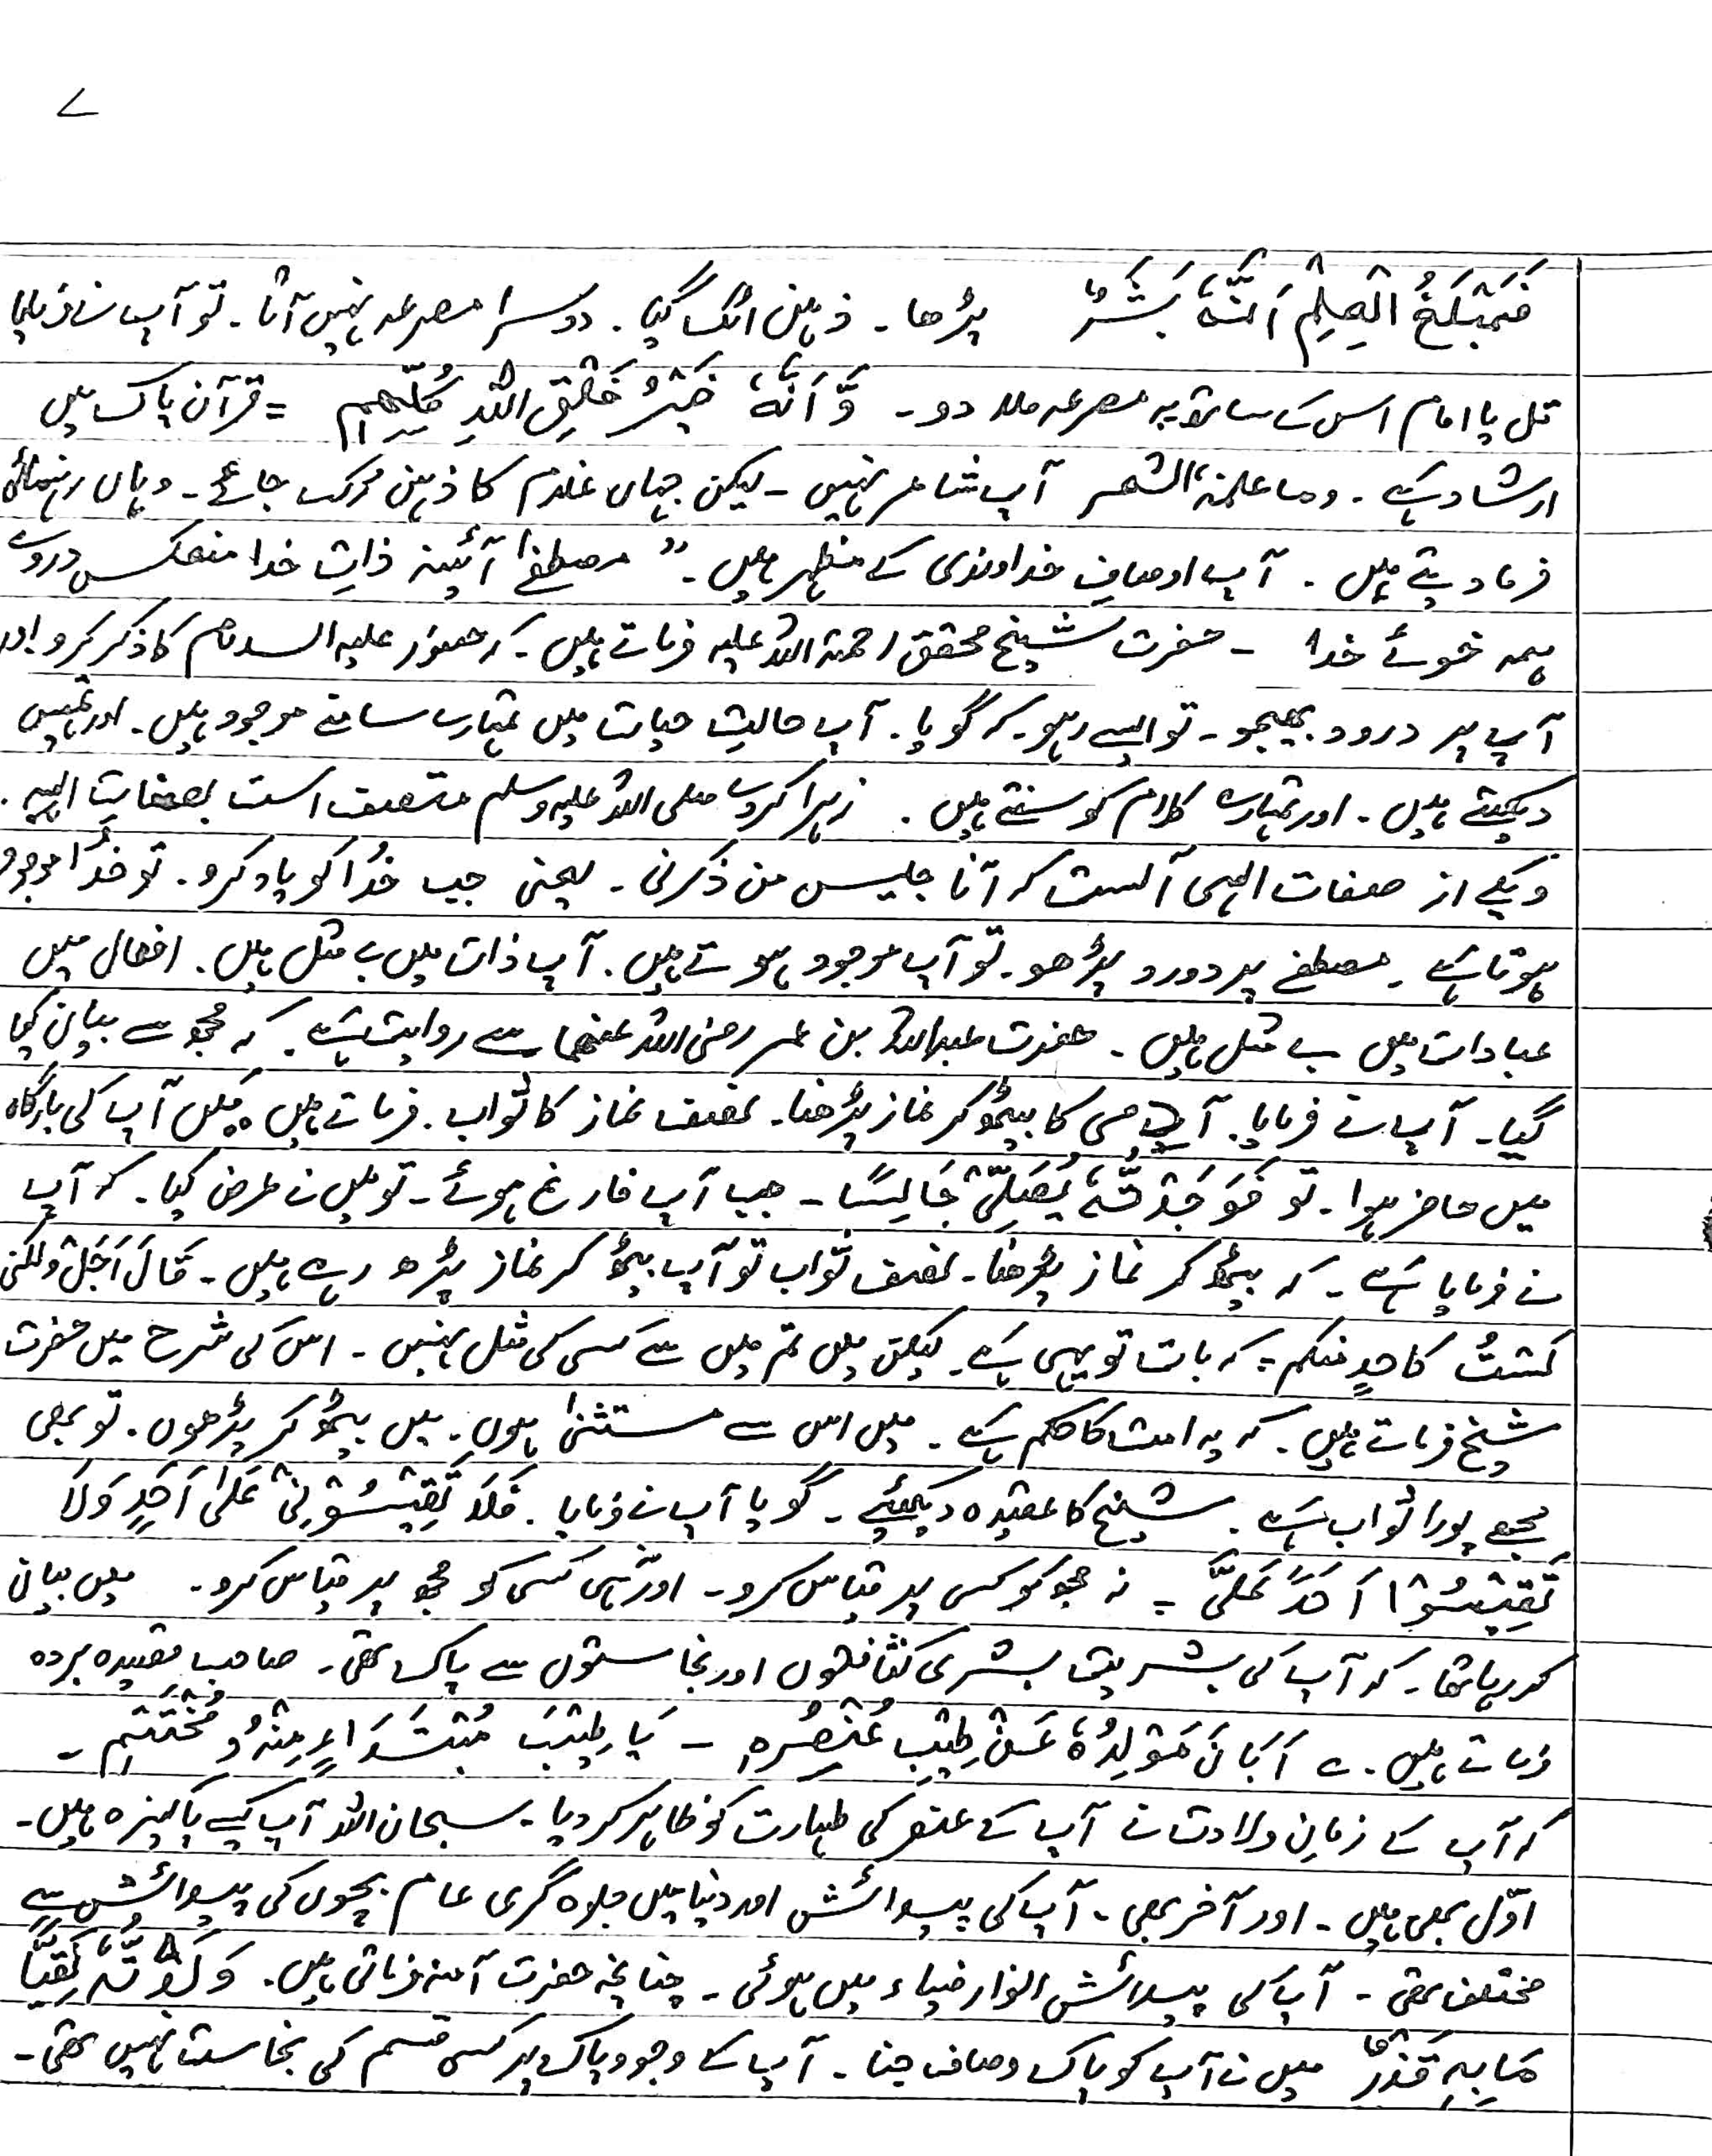 ۷
فَمَبْلَغُ الْعِلْمِ اَنَّہٗ بَشَرٌ پڑھا۔ ذہن اٹک گیا۔ دوسرا مصرعہ نہیں آتا۔ تو آپ نے فرمایا
قل یا امام اس کے ساتھ یہ مصرعہ ملا دو۔ وَّ اَنَّہٗ خَیْرُ خَلْقِ اللّٰہِ کُلِّھِمٖ = قرآن پاک میں
ارشاد ہے۔ وما علمنٰہ الشعر آپ شاعر نہیں۔ لیکن جہاں غلام کا ذہن رُک جائے۔ وہاں رہنمائی
فرما دیتے ہیں۔ آپ اوصافِ خداوندی کے مظہر ہیں۔ " مصطفےٰ آئینہ ذاتِ خدا منعکس دروے
ہمہ خوئے خدا ۔ حضرت شیخ محقق رحمۃ اللہ علیہ فرماتے ہیں۔ کہ حضور علیہ السلام کا ذکر کرو اور
آپ پر درود بھیجو۔ تو ایسے رہو۔ کہ گویا۔ آپ حالتِ حیات میں تمہارے سامنے موجود ہیں۔ اور تمہیں
دیکھتے ہیں۔ اور تمہارے کلام کو سنتے ہیں۔ زیرا کہ وے صلی اللہ علیہ وسلم متصف است بصفاتِ الہیہ۔
ویکے از صفات الہی آنست کہ آنا جلیس من ذکرنی۔ یعنی جب خُدا کو یاد کرو۔ تو خُدا موجود
ہوتا ہے۔ مصطفےٰ پر دورو پڑھو۔ تو آپ موجود ہوتے ہیں۔ آپ ذات میں بے مثل ہیں۔ افعال میں
عبادات میں بے مثل ہیں۔ حضرت عبداللہ بن عمر رضی اللہ عنھما سے روایت ہے۔ کہ مجھ سے بیان کیا
گیا۔ آپ نے فرمایا۔ آدمی کا بیٹھ کر نماز پڑھنا۔ نصف نماز کا ثواب۔ فرماتے ہیں میں آپ کی بارگاہ
میں حاضر ہوا۔ تو فَوَجَدْتُّہٗ یُصَلِّیْ جَالِسًا ۔ جب آپ فارغ ہوئے۔ تو میں نے عرض کیا۔ کہ آپ
نے فرمایا ہے۔ کہ بیٹھ کر نماز پڑھنا۔ نصف ثواب تو آپ بیٹھ کر نماز پڑھ رہے ہیں۔ قَالَ اَجَلْ ولٰکنی
لَسْتُ کاحدٍ منکم = کہ بات تو یہی ہے۔ لیکن میں تم میں سے کسی کی مثل نہیں۔ اس کی شرح میں حضرت
شیخ فرماتے ہیں۔ کہ یہ امت کا حکم ہے۔ میں اس سے مستثنیٰ ہوں۔ میں بیٹھ کر پڑھوں۔ تو بھی
مجھے پورا ثواب ہے۔ شیخ کا عقیدہ دیکھئیے۔ گویا آپ نے فرمایا۔ فَلَا تَقِیْسُوْنِیْ عَلٰی اَحَدٍ وَلَا
تَقِیْسُوْا اَحَدً عَلَیَّ = نہ مجھ کو کسی پر قیاس کرو۔ اور نہ ہی کسی کو مجھ پر قیاس کرو۔ میں بیان
کر رہا تھا۔ کہ آپ کی بشریت بشری کثافتوں اور نجاستوں سے پاک تھی۔ صاحب قصیدہ بردہ
فرماتے ہیں۔ ے اَبَانَ مَوْلِدُہٗ عَنْ طِیْبِ عُنْصُرِہٖ ۔ یَا طِیْبَ مُبْتَدَاءٍ مِنْہُ وَ مُخْتَتَمٖ ۔
کہ آپ کے زمانِ ولادت نے آپ کے عنصر کی طہارت کو ظاہر کر دیا۔ سبحان اللہ آپ کیسے پاکیزہ ہیں۔
اوّل بھی ہیں۔ اور آخر بھی۔ آپ کی پیدائش اور دنیا میں جلوہ گری عام بچوں کی پیدائش سے
مختلف تھی۔ آپ کی پیدائش انوار ضیاء میں ہوئی۔ چنانچہ حضرت آمنہ فرماتی ہیں۔ وَلَدْتُّہٗ نَقِیًّا
مَابِہٖ قَذَرٌ میں نے آپ کو پاک و صاف جنا۔ آپ کے وجود پاک پر کسی قسم کی نجاست نہیں تھی۔